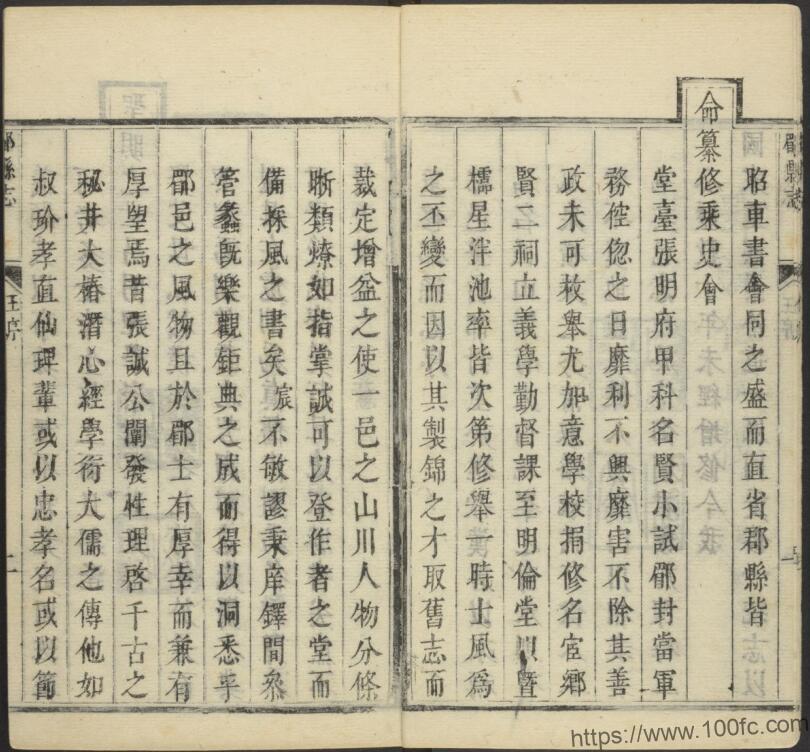 昭車書會同之盛而直省郡縣皆
命纂修乘史會
堂臺張明府甲科名賢小試郿封當軍
務倥偬之日靡利不興靡害不除其善
政未可枚舉尤加意學校捐修名宦鄉
賢二祠立義學勤督課至明倫堂以暨
櫺星泮池率皆次第修舉一時士風爲
之丕變而因以其製錦之才取舊志而
裁定增益之使一邑之山川人物分條
晰類燎如指掌誠可以登作者之堂而
備採風之書矣宸不敏謬秉庠鐸間叅
管蠡旣樂觀鉅典之成而得以洞悉乎
郿邑之風物且於郿士有厚幸而兼有
厚望焉昔張誠公闡發性理啓千古之
秘井大椿潛心經學衍大儒之傳他如
叔玠孝直仙理輩或以忠孝名或以節
郿縣志
王序
二
https://www.100fc.com